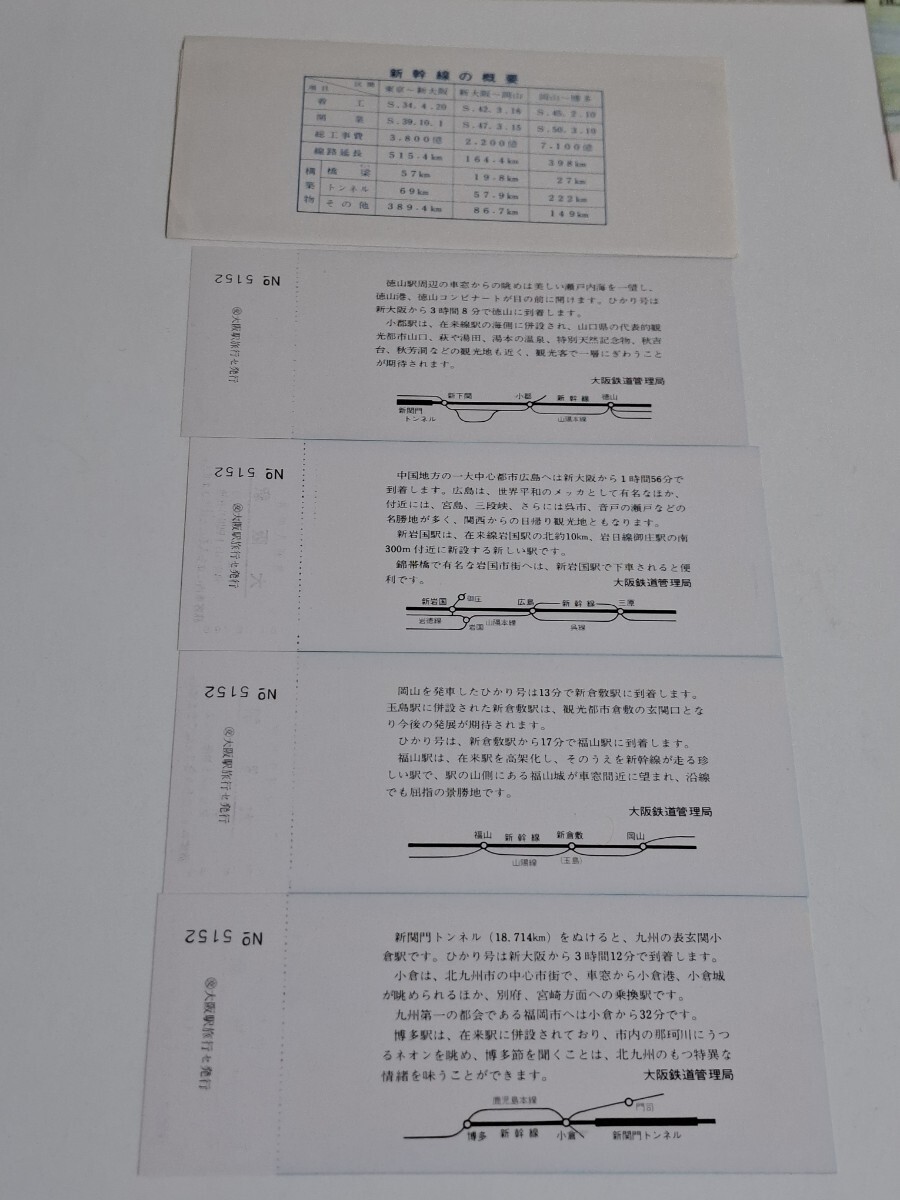 新幹線の概要
区間 項目 東京〜新大阪 新大阪〜岡山 岡山〜博多
着工 S.34.4.20 S.42.3.16 S.45.2.10
開業 S.39.10.1 S.47.3.15 S.50.3.10
総工事費 3,800億 2,200億 7,100億
線路延長 515.4km 164.4km 398km
構築物 橋梁 57km 19.8km 27km
トンネル 69km 57.9km 222km
その他 389.4km 86.7km 149km
No 5152
大阪駅旅行セ発行
徳山駅周辺の車窓からの眺めは美しい瀬戸内海を一望し、
徳山港、徳山コンビナートが目の前に開けます。ひかり号は
新大阪から3時間8分で徳山に到着します。
小郡駅は、在来線駅の海側に併設され、山口県の代表的観
光都市山口、萩や湯田、湯本の温泉、特別天然記念物、秋吉
台、秋芳洞などの観光地も近く、観光客で一層にぎわうこと
が期待されます。
大阪鉄道管理局
新下関 小郡 新幹線 徳山
新関門
トンネル
山陽本線
No 5152
大阪駅旅行セ発行
中国地方の一大中心都市広島へは新大阪から1時間56分で
到着します。広島は、世界平和のメッカとして有名なほか、
付近には、宮島、三段峡、さらには呉市、音戸の瀬戸などの
名勝地が多く、関西からの日帰り観光地ともなります。
新岩国駅は、在来線岩国駅の北約10km、岩日線御庄駅の南
300m付近に新設する新しい駅です。
錦帯橋で有名な岩国市街へは、新岩国駅で下車されると便
利です。
大阪鉄道管理局
新岩国 御庄 広島 新幹線 三原
岩徳線 岩国 山陽本線 呉線
No 5152
大阪駅旅行セ発行
岡山を発車したひかり号は13分で新倉敷駅に到着します。
玉島駅に併設された新倉敷駅は、観光都市倉敷の玄関口とな
り今後の発展が期待されます。
ひかり号は、新倉敷駅から17分で福山駅に到着します。
福山駅は、在来駅を高架化し、そのうえを新幹線が走る珍
しい駅で、駅の山側にある福山城が車窓間近に望まれ、沿線
でも屈指の景勝地です。
大阪鉄道管理局
福山 新幹線 新倉敷 岡山
山陽線 (玉島)
No 5152
大阪駅旅行セ発行
新関門トンネル(18.714km)をぬけると、九州の表玄関小
倉駅です。ひかり号は新大阪から3時間12分で到着します。
小倉は、北九州市の中心市街で、車窓から小倉港、小倉城
が眺められるほか、別府、宮崎方面への乗換駅です。
九州第一の都会である福岡市へは小倉から32分です。
博多駅は、在来駅に併設されており、市内の那珂川にうつ
るネオンを眺め、博多節を聞くことは、北九州のもつ特異な
情緒を味うことができます。
大阪鉄道管理局
鹿児島本線 門司
博多 新幹線 小倉 新関門トンネル